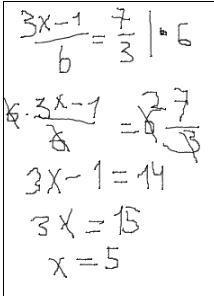 3x-1/6 = 7/3 | · 6
6 · 3x-1/6 = 6 2 7/3
3x-1=14
3x=15
x=5